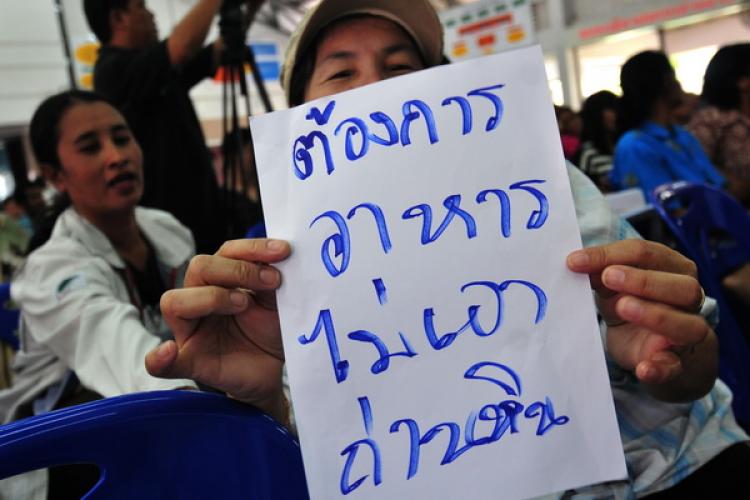 ต้องการ
อาหาร
ไม่เอา
ถ่านหิน